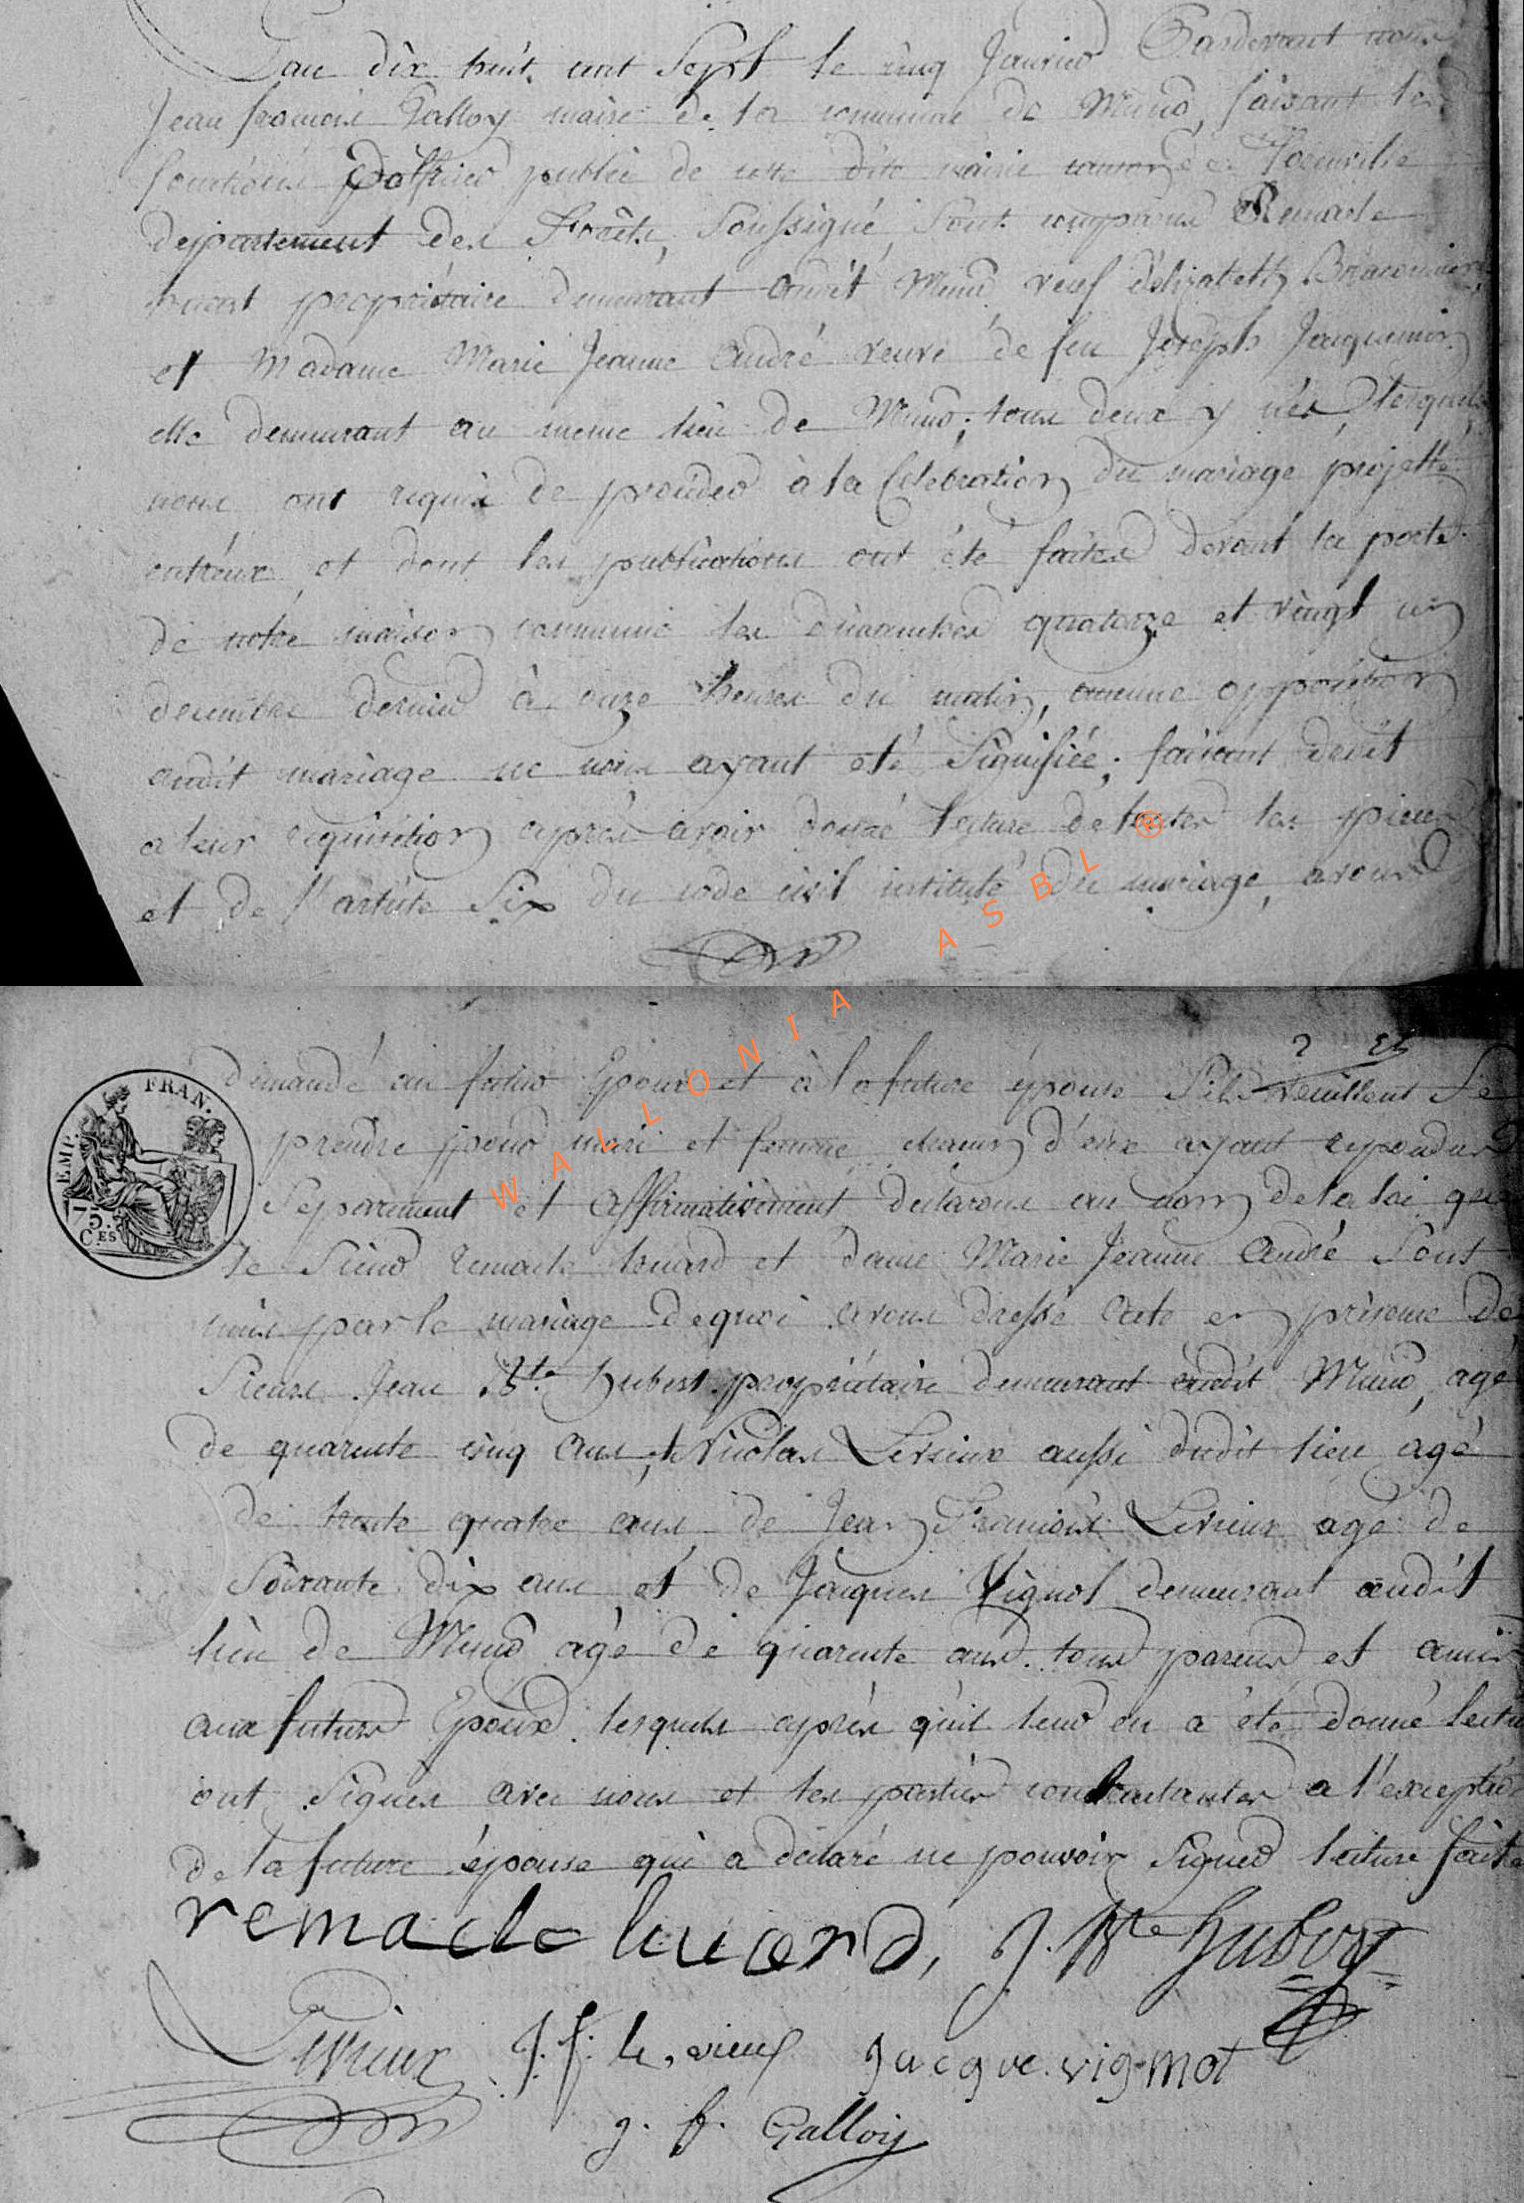 L'an dix huit cent Sept le cinq Janvier Pardevant nous
Jean françois Galloy maire de la commune de Muno, faisant les
fonctions d'officier public de cette dite mairie canton de florenville
departement des Forêts, Soussigné, Sont comparus Remacle
huart propriétaire demeurant audit Muno veuf d'élizabeth Braconnier
et Madame Marie Jeanne André veuve de feu Joseph Jacquemin
elle demeurant au meme lieu de Muno; tous deux y nés, lesquels
nous ont requis de proceder à la Celebration du mariage projetté
entreux, et dont les publications ont été faites devant la porte
de notre maison commune les dimanches quatorze et vingt un
decembre dernier à onze heures du matin, aucune opposition
audit mariage ne nous ayant été Signifiée; faisant droit
a leur requisition après avoir donné lecture de toutes les pieces
et de l'article Six du code civil intitulé du mariage, avons
WALLONIA ASBL ®
2 Es
demandé au futur Epoux et à la future épouse S'ils veuillent Se
FRAN.
EMP.
75.
C.ES
prendre pour mari et femme, chacun d'eux ayant repondu
Séparement et affirmativement declarons au nom de la loi que
le Sieur remacle huard et dame Marie Jeanne André Sont
unis par le mariage dequoi avons dressé acte en présence de
Sieurs Jean Bte hubert propriétaire demeurant audit Muno, agé
de quarente cinq ans, et Nicolas Levieux aussi dudit lieu agé
de trente quatre ans de Jean François Levieux agé de
Soixante dix ans et de Jacques Vignot demeurant audit
lieu de Muno agé de quarente ans tous parens et amis
aux futurs Epoux lesquels après qu'il leur en a été donné lectu
ont Signes avec nous et les parties contractantes a l'exceptio
de la future épouse qui a déclaré ne pouvoir Signer lecture faite
remacle huard, J. Bte hubert
Levieux J. f. le vieux Jacque vignot
j. f. Galloy